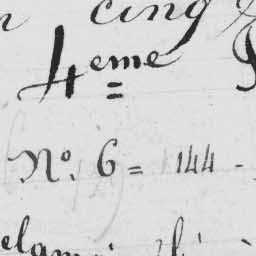 cinq
4eme
No. 6 = 144 -